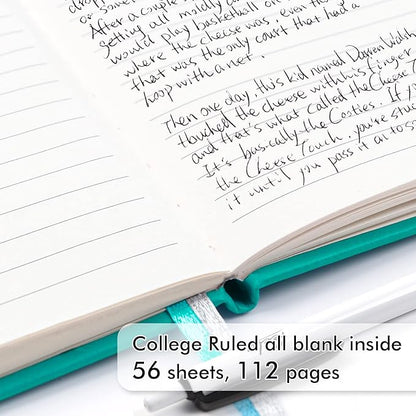 or some
After a couple
getting all mildly
would play basketball on
where the cheese was, even tho
that was the only court that had a
hoop with a net.
Then one day this kid named Darren Walsh
touched the cheese with his finger
and that's what called the Cheese T
It's basically the Cooties. If yo
the Cheese Touch, you're stuc
it until you pass it on to so
College Ruled all blank inside
56 sheets, 112 pages